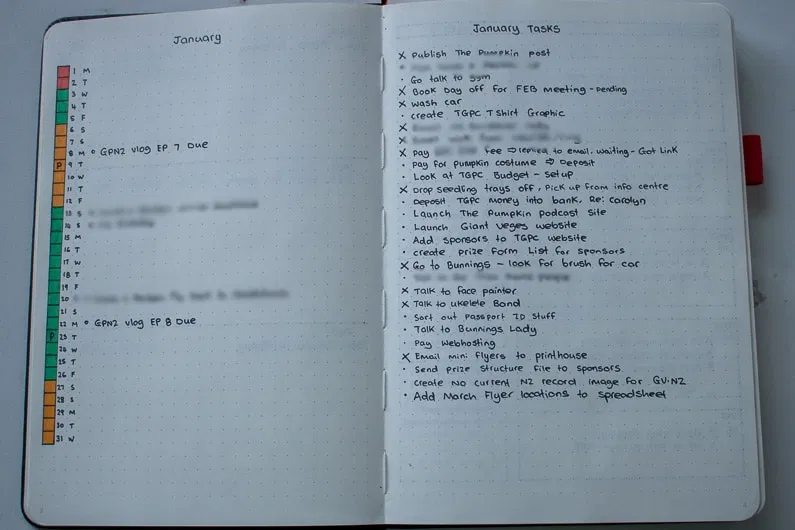 January
1 M
2 T
3 W
4 T
5 F
6 S
7 S
8 M o GPNZ Vlog EP 7 Due
P 9 T
10 W
11 T
12 F
13 S
14 S
15 M
16 T
17 W
18 T
19 F
20
21 S
22 M o GPNZ Vlog EP 8 Due
P 23 T
24 W
25 T
26 F
27 S
28 S
29 M
30 T
31 W
January Tasks
x Publish The Pumpkin post
· Go talk to gym
x Book Day off for FEB meeting - pending
x wash car
· create TGPC T Shirt Graphic
x
x
x Pay fee ⇒ replied to email. waiting - Got Link
· Pay for pumpkin costume ⇒ Deposit
· Look at TGPC Budget - set up
x Drop seedling trays off, pick up from info centre
· Deposit TGPC money into bank. Re: Carolyn
· Launch The Pumpkin podcast site
· Launch Giant veges website
· Add sponsors to TGPC website
· create prize form List for sponsors
x Go to Bunnings - look for brush for car
x Talk to face painter
x Talk to ukelele Band
· Sort out Passport ID stuff
· Talk to Bunnings Lady
· Pay Webhosting
x Email mini flyers to printhouse
· Send Prize Structure File to sponsors
· create No current NZ record image for GV.NZ
· Add March Flyer locations to spreadsheet